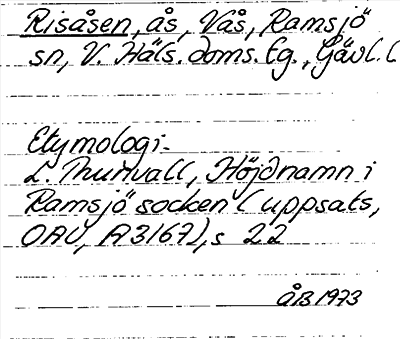 Risåsen, ås, Vås, Ramsjö
sn, V. Häls. doms. tg., Gävl. l
Etymologi.
L. Thunvall, Höjdnamn i
Ramsjö socken (uppsats,
OAU, A3167), s 22
ÅB 1973